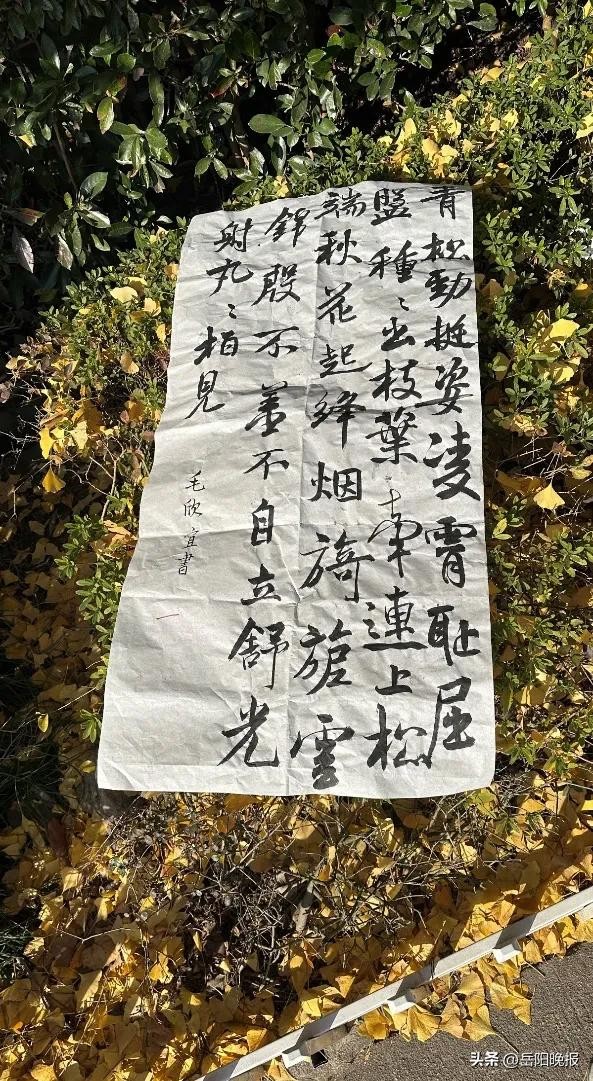 青松勁挺姿凌霄耻屈
盤種〻出枝葉牽連上松
端秋花起絳烟旖旎雲
錦殷不羞不自立舒光
射丸〻柏見
毛欣宜書
头条 @岳阳晚报